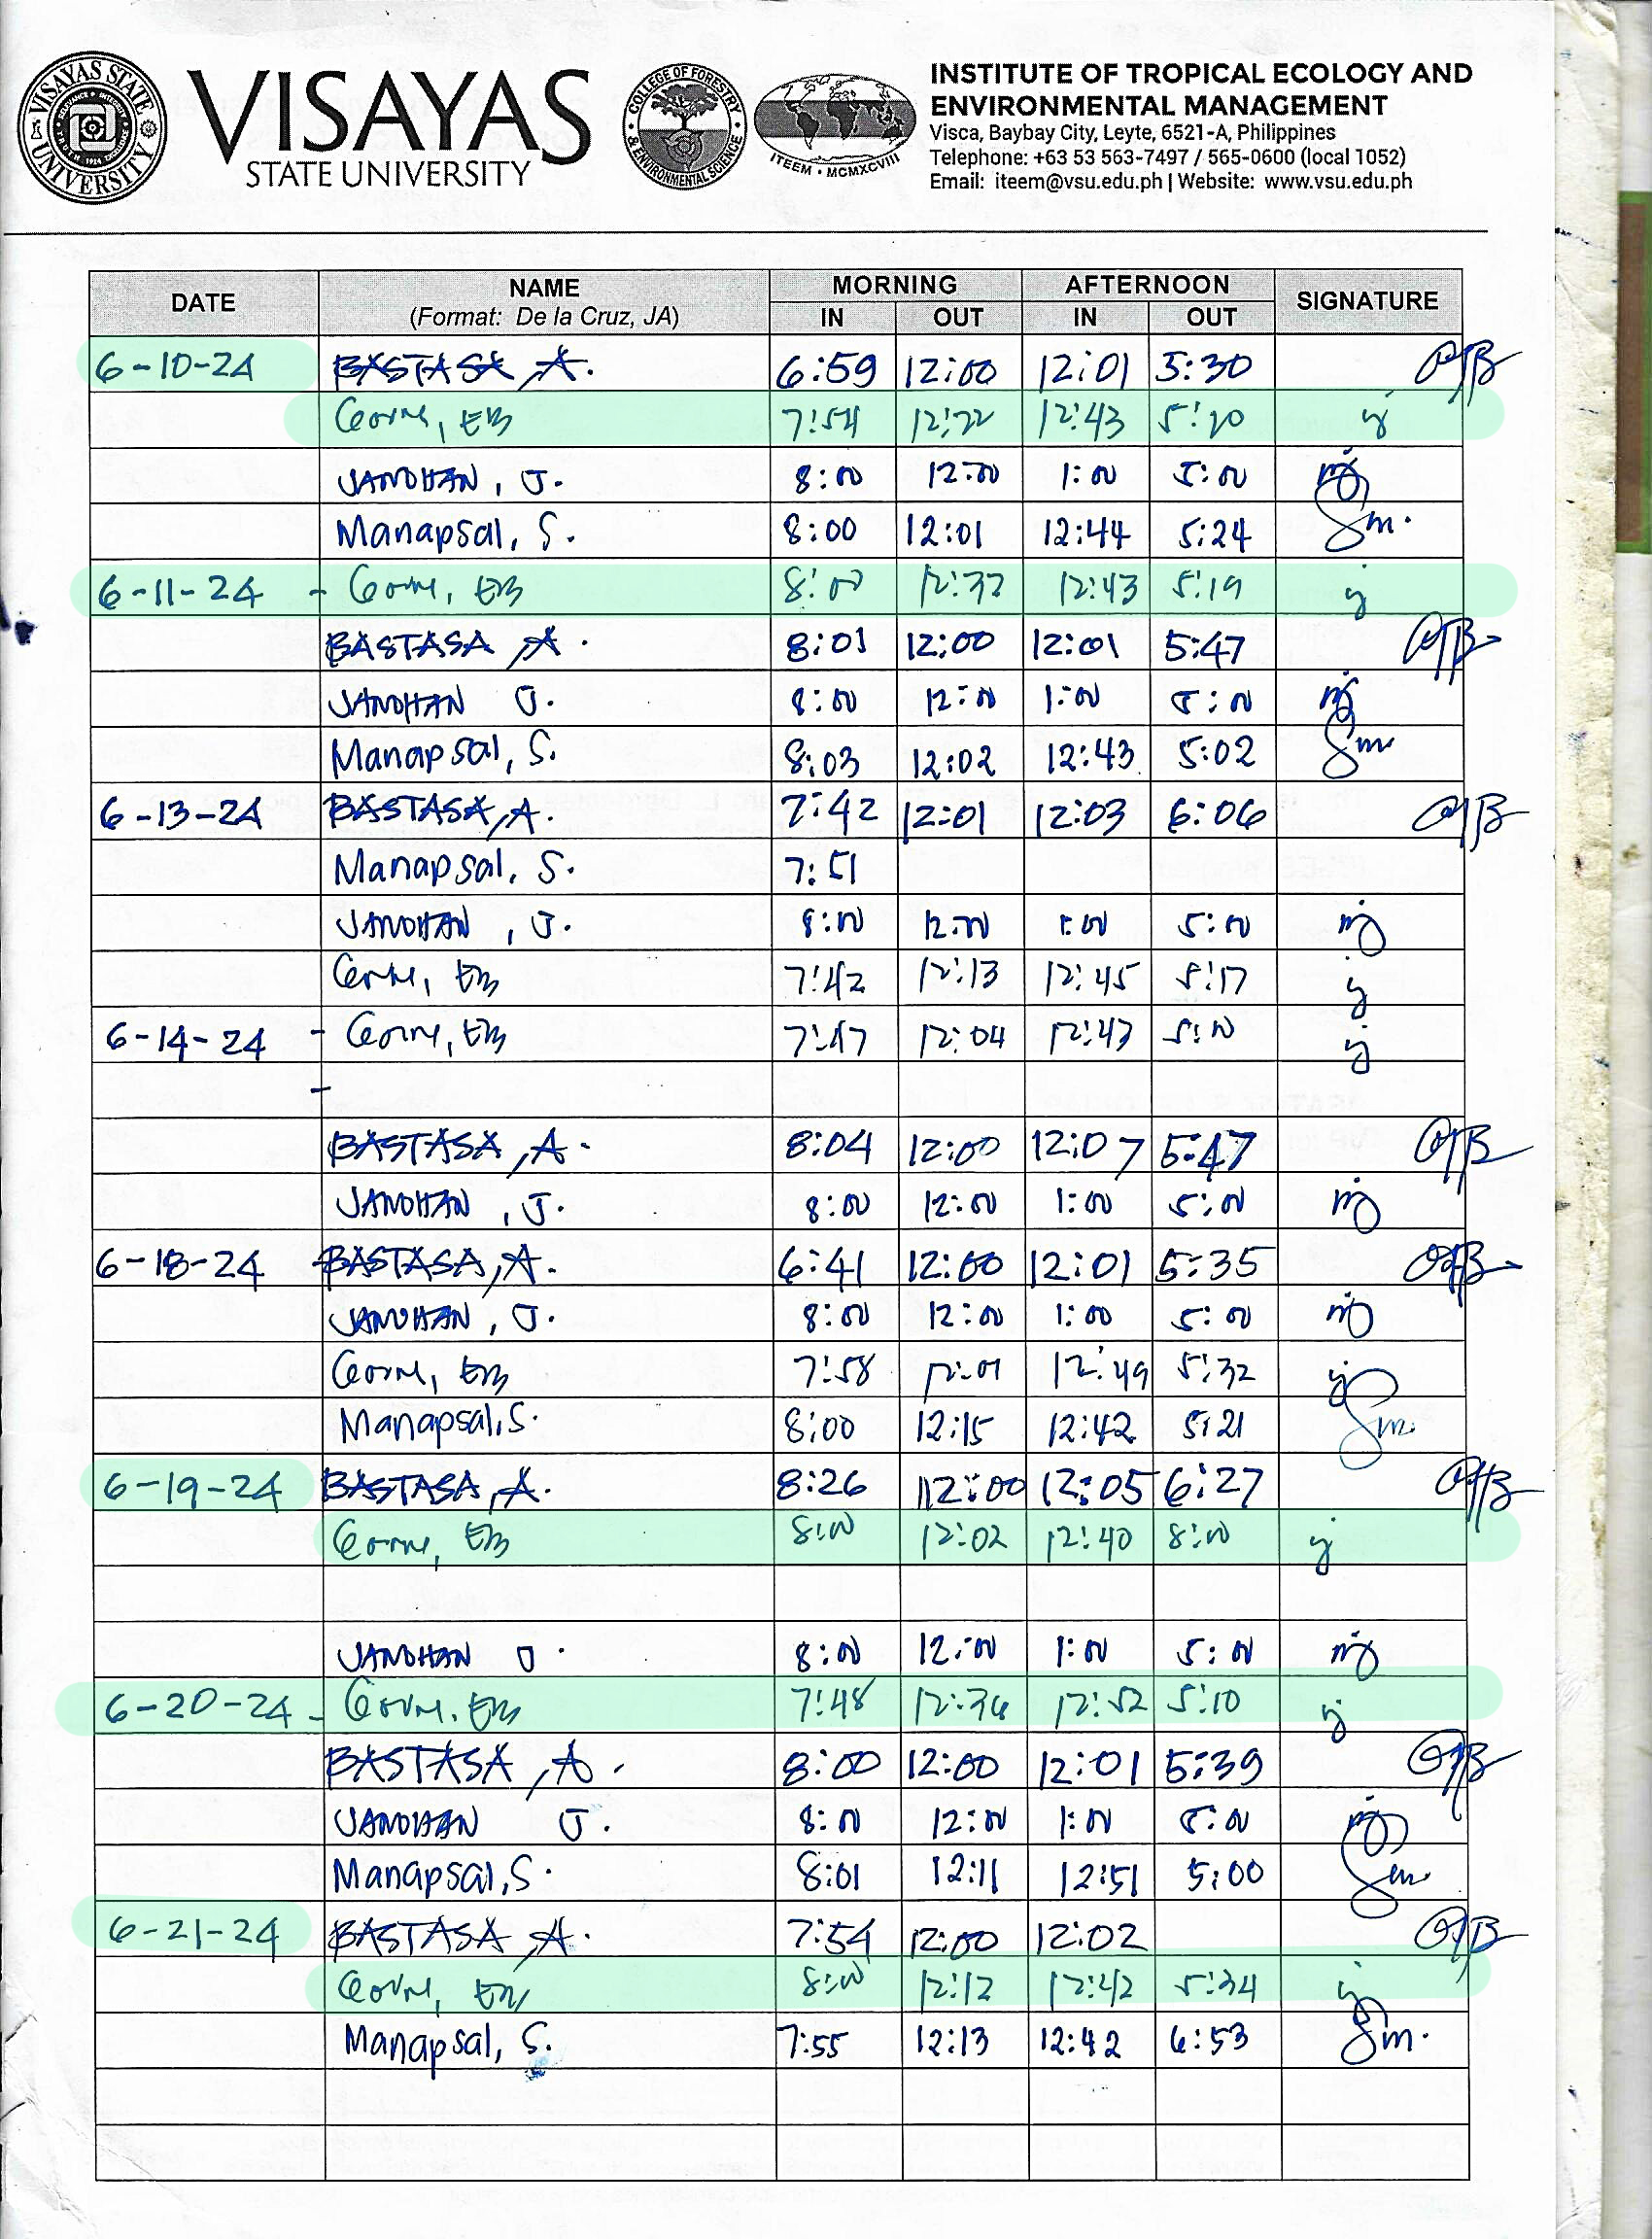 VISAYAS STATE UNIVERSITY
VISAYAS
STATE UNIVERSITY
COLLEGE OF FORESTRY & ENVIRONMENTAL SCIENCE
ITEEM • MCMXCVIII
INSTITUTE OF TROPICAL ECOLOGY AND
ENVIRONMENTAL MANAGEMENT
Visca, Baybay City, Leyte, 6521-A, Philippines
Telephone: +63 53 563-7497 / 565-0600 (local 1052)
Email: iteem@vsu.edu.ph | Website: www.vsu.edu.ph
DATE NAME MORNING AFTERNOON SIGNATURE
(Format: De la Cruz, JA) IN OUT IN OUT
6-10-24 BASTASA, A. 6:59 12:00 12:01 5:30
7:54 12:22 12:43 5:20
JANOHAN, J. 8:00 12:00 1:00 5:00
Manapsal, S. 8:00 12:01 12:44 5:24 Sm.
6-11-24 - 8:00 12:43 5:19
BASTASA, A. 8:01 12:00 12:01 5:47
JANOHAN J. 8:00 12:00 1:00 5:00
Manapsal, S. 8:03 12:02 12:43 5:02 Sm
6-13-24 BASTASA, A. 7:42 12:01 12:03 6:06
Manapsal, S. 7:51
JANOHAN, J. 8:00 12:00 1:00 5:00
7:42 12:13 12:45 5:17
6-14-24 - 7:47 12:04 12:43 5:10
-
BASTASA, A. 8:04 12:00 12:07 5:47
JANOHAN, J. 8:00 12:00 1:00 5:00
6-18-24 BASTASA, A. 6:41 12:00 12:01 5:35
JANOHAN, J. 8:00 12:00 1:00 5:00
7:58 12:01 12:49 5:32
Manapsal, S. 8:00 12:15 12:42 5:21 Sm.
6-19-24 BASTASA, A. 8:26 12:00 12:05 6:27
8:00 12:02 12:40 8:00
JANOHAN J. 8:00 12:00 1:00 5:00
6-20-24 - 7:48 12:52 5:10
BASTASA, A. 8:00 12:00 12:01 5:39
JANOHAN J. 8:00 12:00 1:00 5:00
Manapsal, S. 8:01 12:11 12:51 5:00 Sm
6-21-24 BASTASA, A. 7:54 12:00 12:02
8:00 12:12 12:42 5:34
Manapsal, S. 7:55 12:13 12:42 6:53 Sm.